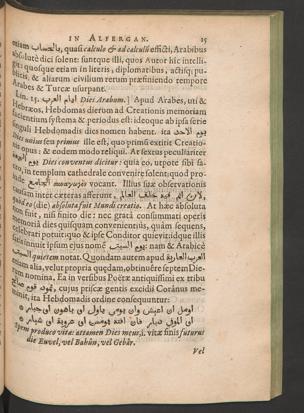 IN ALFERGAN. 15
etiam بالحساب, quasi calculo & ad calculū effictī, Arabibus
absolutè dici solent: suntque illi, quos Autor hic intelli-
git: quosque etiam in literis, diplomatibus, actisq; pu-
blicis, & aliarum civilium rerum præfiniendo tempore
Arabes & Turcæ usurpant.
Lin. 15. ايام العرب Dies Arabum.] Apud Arabes, uti &
Hebræos, Hebdomas dierum ad Creationis memoriam
facientium systema & periodus est: ideoque ab ipsa serie
singuli Hebdomadis dies nomen habent. ita يوم الاحد
dies unius seu primus ille est, quo primū extitit Creatio-
nis opus: & eodem modo reliqui. At sextus peculiariter
يوم الجمعة Dies conventus dicitur: quia eo, utpote sibi sa-
cro, in templum cathedrale convenire solent; quod pro-
inde الجامع vocant. Illius suæ observationis
causam inter cæteras afferunt, لان تم فيه خلف العالم
quòd eo (die) absoluta fuit Mundi creatio. At hæc absoluta
non fuit, nisi finito die: nec grata consummati operis
memoria dies quisquam convenientius, quàm sequens,
celebrari potuit: quo & ipse Conditor quievit: idque illis
satis innuit ipsum ejus nomē يوم السبت: nam & Arabicè
السبت quietem notat. Quondam autem apud العرب العاربة
etiam alia, velut propria quædam, obtinuêre septem Die-
rum nomina, Ea in versibus Poëtæ antiquissimi ex tribu
ثمود, cujus priscæ gentis excidii Coránus me-
minit, ita Hebdomadis ordine consequuntur:
اومل ان اعيش وان يومي باول ان باهون ان جبار
ان المردي دبار فان افته فمونس ان عروبة ان شيار
Spem produco vitæ: attamen Dies meus, i. vitæ finis futurus
die Euvel, vel Bahùn, vel Gebâr.
Vel